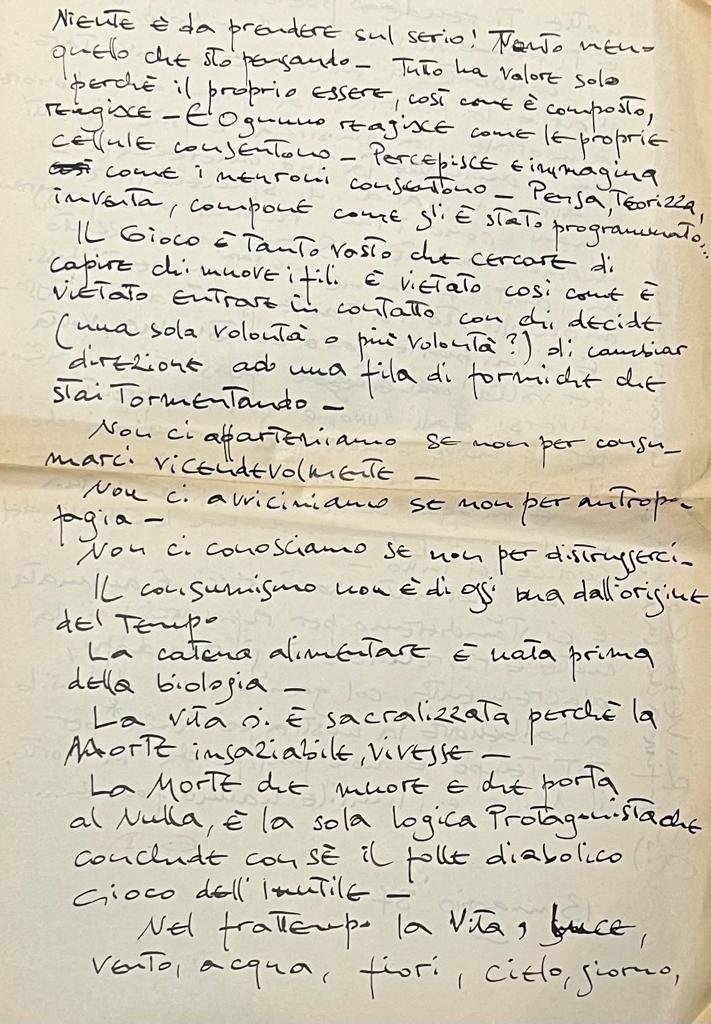 Niente è da prendere sul serio! Tanto meno
quello che sto pensando – Tutto ha valore solo
perchè il proprio essere, così come è composto,
reagisce – E Ognuno reagisce come le proprie
cellule consentono – Percepisce e immagina
così come i neuroni consentono – Pensa, Teorizza,
inventa, compone come gli è stato programmato...
IL Gioco è Tanto vasto che cercare di
capire chi muove i fili è vietato così come è
vietato entrare in contatto con chi decide
(una sola volontà o più volontà?) di cambiar
direzione ad una fila di formiche che
stai Tormentando –
Non ci apparteniamo se non per consu-
marci vicendevolmente –
Non ci avviciniamo se non per antropo-
fagia –
Non ci conosciamo se non per distruggerci –
IL consumismo non è di oggi ma dall'origine
del Tempo
La catena alimentare è nata prima
della biologia –
La vita si è sacralizzata perchè la
Morte insaziabile, vivesse –
La Morte che muore e che porta
al Nulla, è la sola logica Protagonista che
conclude con sè il folle diabolico
Gioco dell'Inutile –
Nel frattempo la Vita, luce,
vento, acqua, fiori, cielo, giorno,